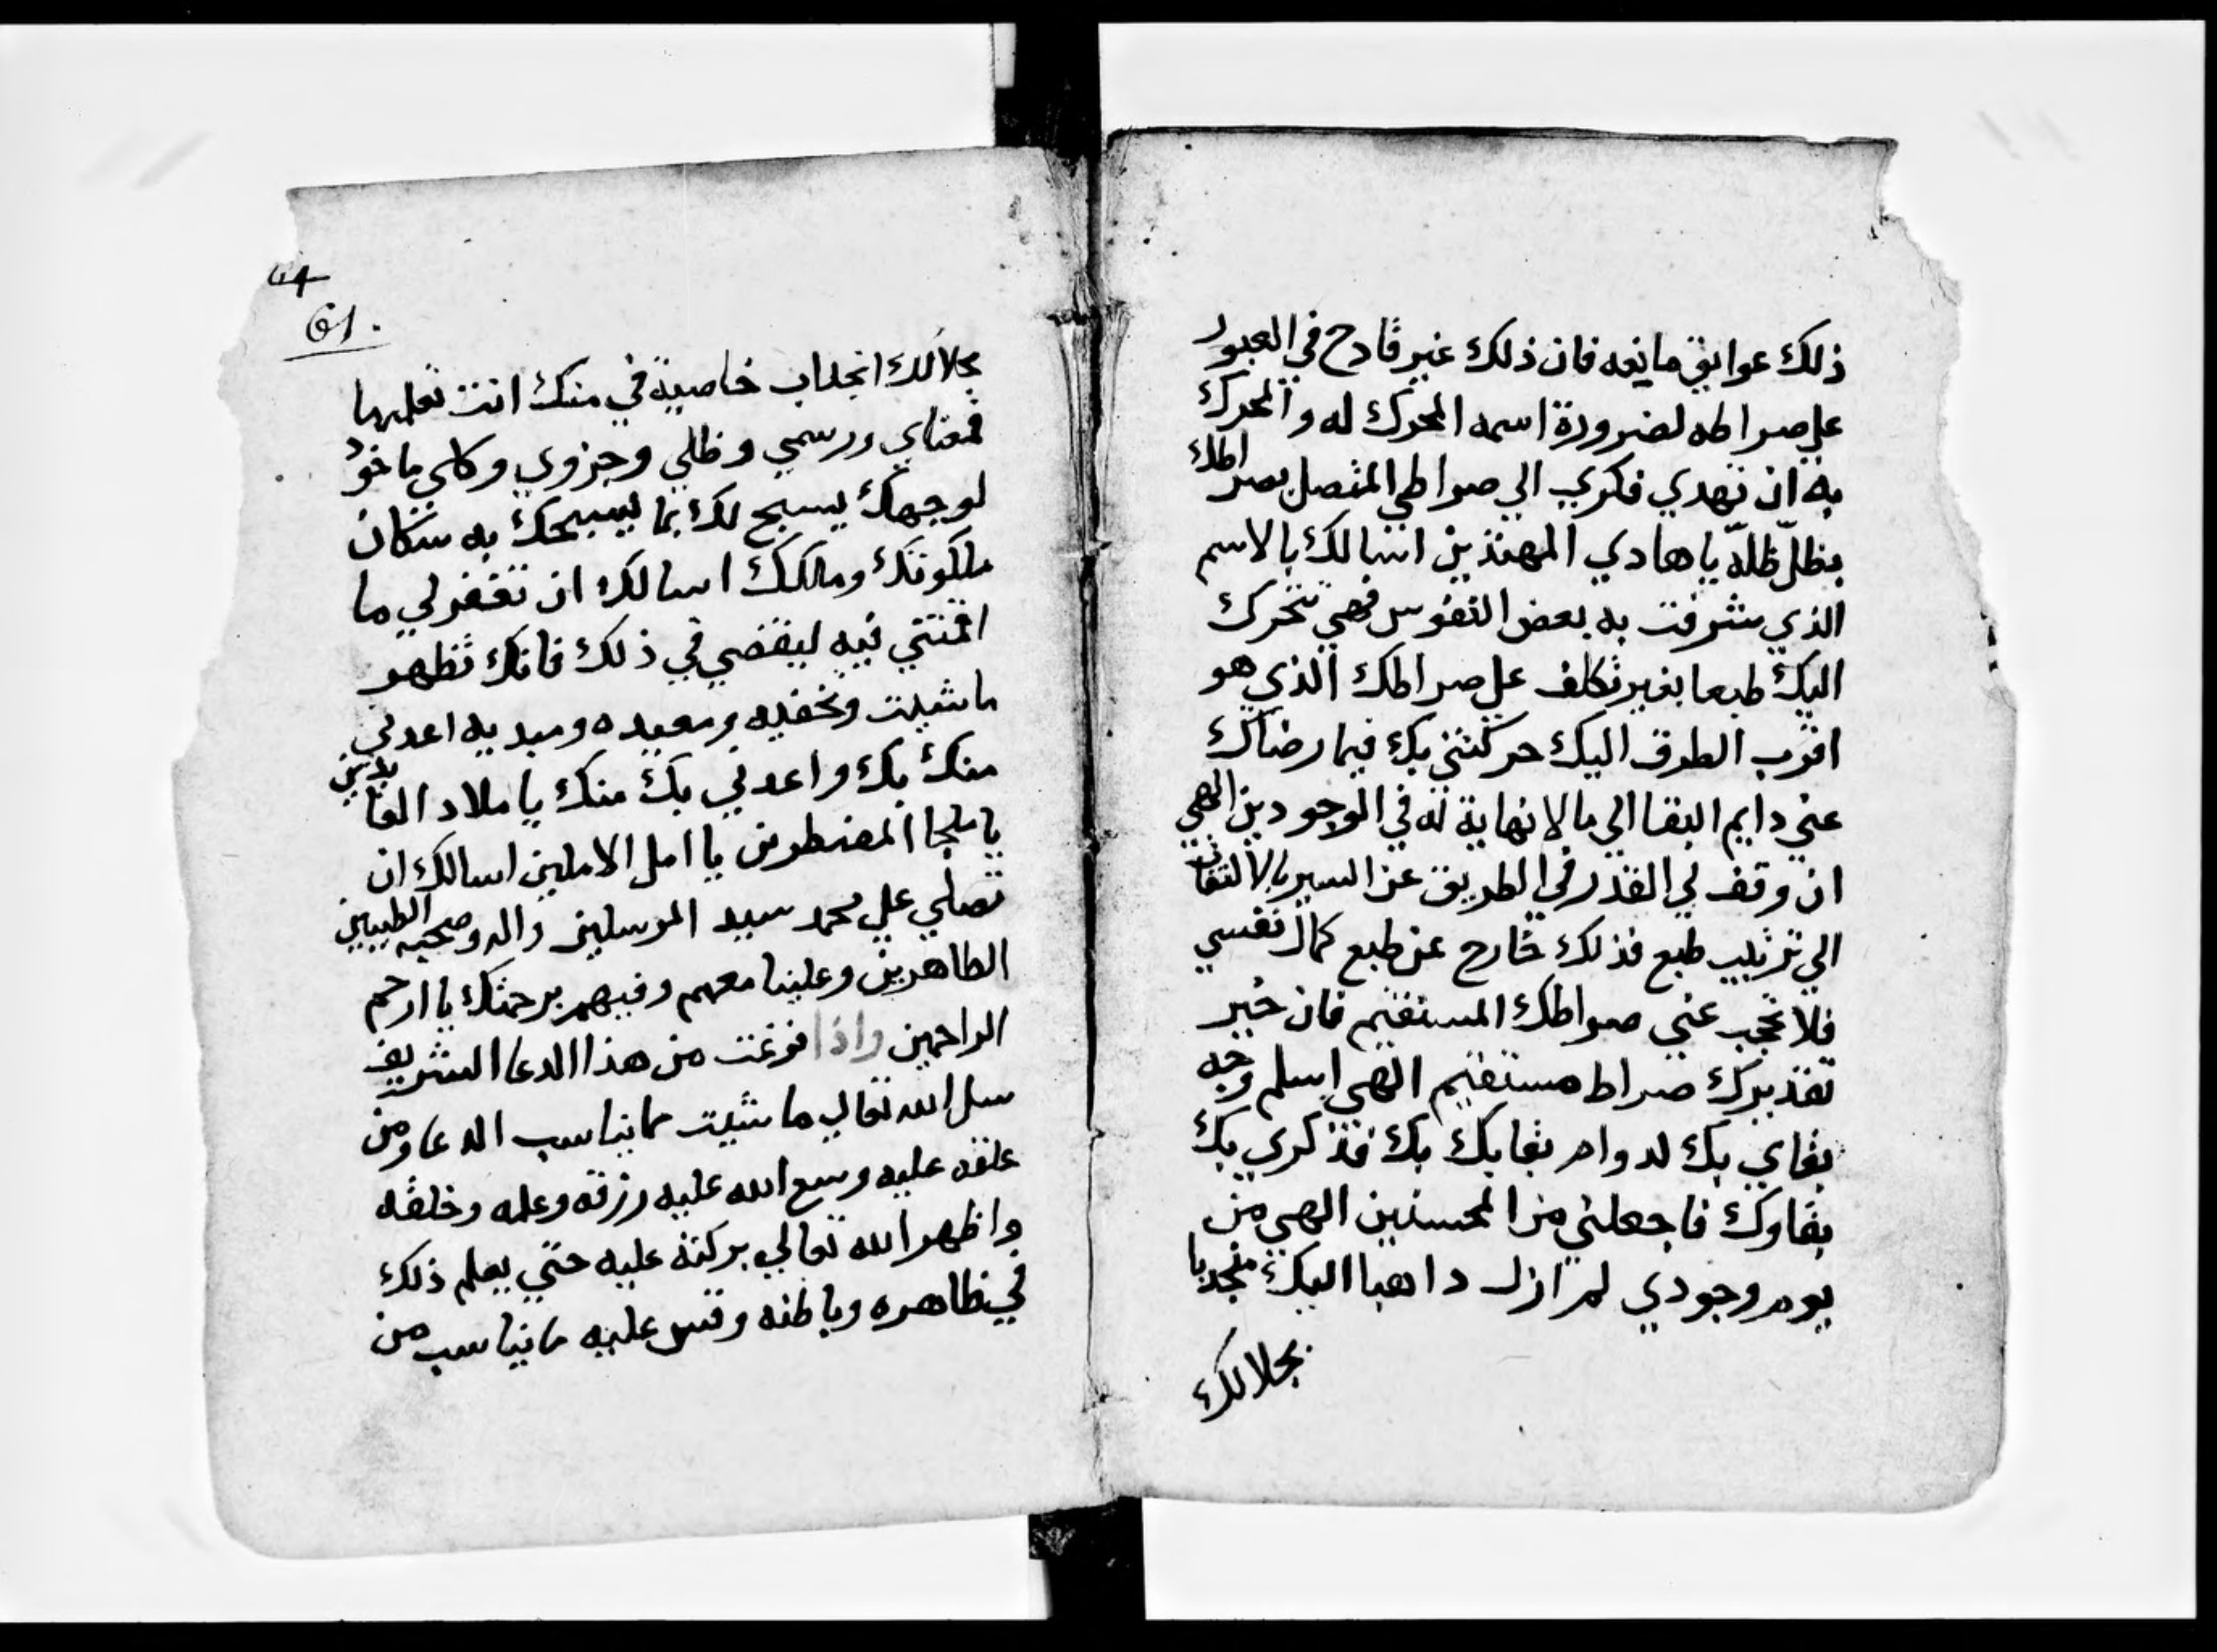 ذلك عوايق مانعه فان ذلك غير قادح في العبور
علي صراطه لضرورة اسمه المحرك له والمحرك
به ان تهدي فكري الي صراطي المتصل بصراطك
بظلّ ظلّه يا هادي المهتدين اسالك بالاسم
الذي شرفت به بعض النفوس فهي تتحرك
اليك طبعا بغير تكلف علي صراطك الذي هو
اقرب الطرق اليك حركتني بك فيما رضاك
عني دايم البقا الي ما لا نهاية له في الوجودين الهي
ان وقف لي القدر في الطريق عن السير بالالتفات
الي ترتيب طبع فذلك خارج عن طبع كمال نفسي
فلا تحجب عني صراطك المستقيم فان خير
تقديرك صراط مستقيم الهي اسلم وجه
بقاي بك لدوام بقايك بك فذكري بك
بقاوك فاجعلني من المحسنين الهي من
يوم وجودي لم ازل داهبا اليك منجدبا
بجلالك
64
61.
بجلالك انجداب خاصية في منك انت تعلمها
فمعناي ورسمي وظلي وجزوي وكلي ماخود
لوجهك يسبح لك بما يسبحك به سكان
ملكوتك ومالكك اسالك ان تغفر لي ما
اقمتني فيه ليقضي في ذلك فانك تظهر
ما شيت وتخفيه ومعيده ومبديه اعدني
منك بك واعدني بك منك يا ملاد العايدين
يا ملجا المضطرين يا امل الاملين اسالك ان
تصلي علي محمد سيد المرسلين واله وصحبه الطيبين
الطاهرين وعلينا معهم وفيهم برحمتك يا ارحم
الراحمين واذا فرغت من هذا الدعا الشريف
سل الله تعالي ما شيت مما يناسب الدعا ومن
علقه عليه وسع الله عليه رزقه وعلمه وخلقه
واظهر الله تعالي بركته عليه حتي يعلم ذلك
في ظاهره وباطنه وقس عليه ما يناسب من